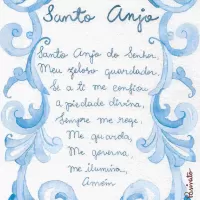 Santo Anjo
Santo Anjo do Senhor,
Meu zeloso guardador.
Se a ti me confiou
a piedade divina,
Sempre me rege,
Me guarda,
Me governa,
me ilumina,
Amém